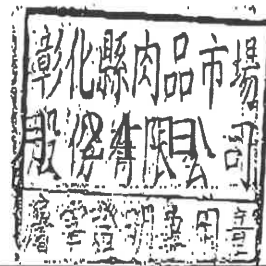 彰化縣肉品市場
股份有限公司
證明專用章